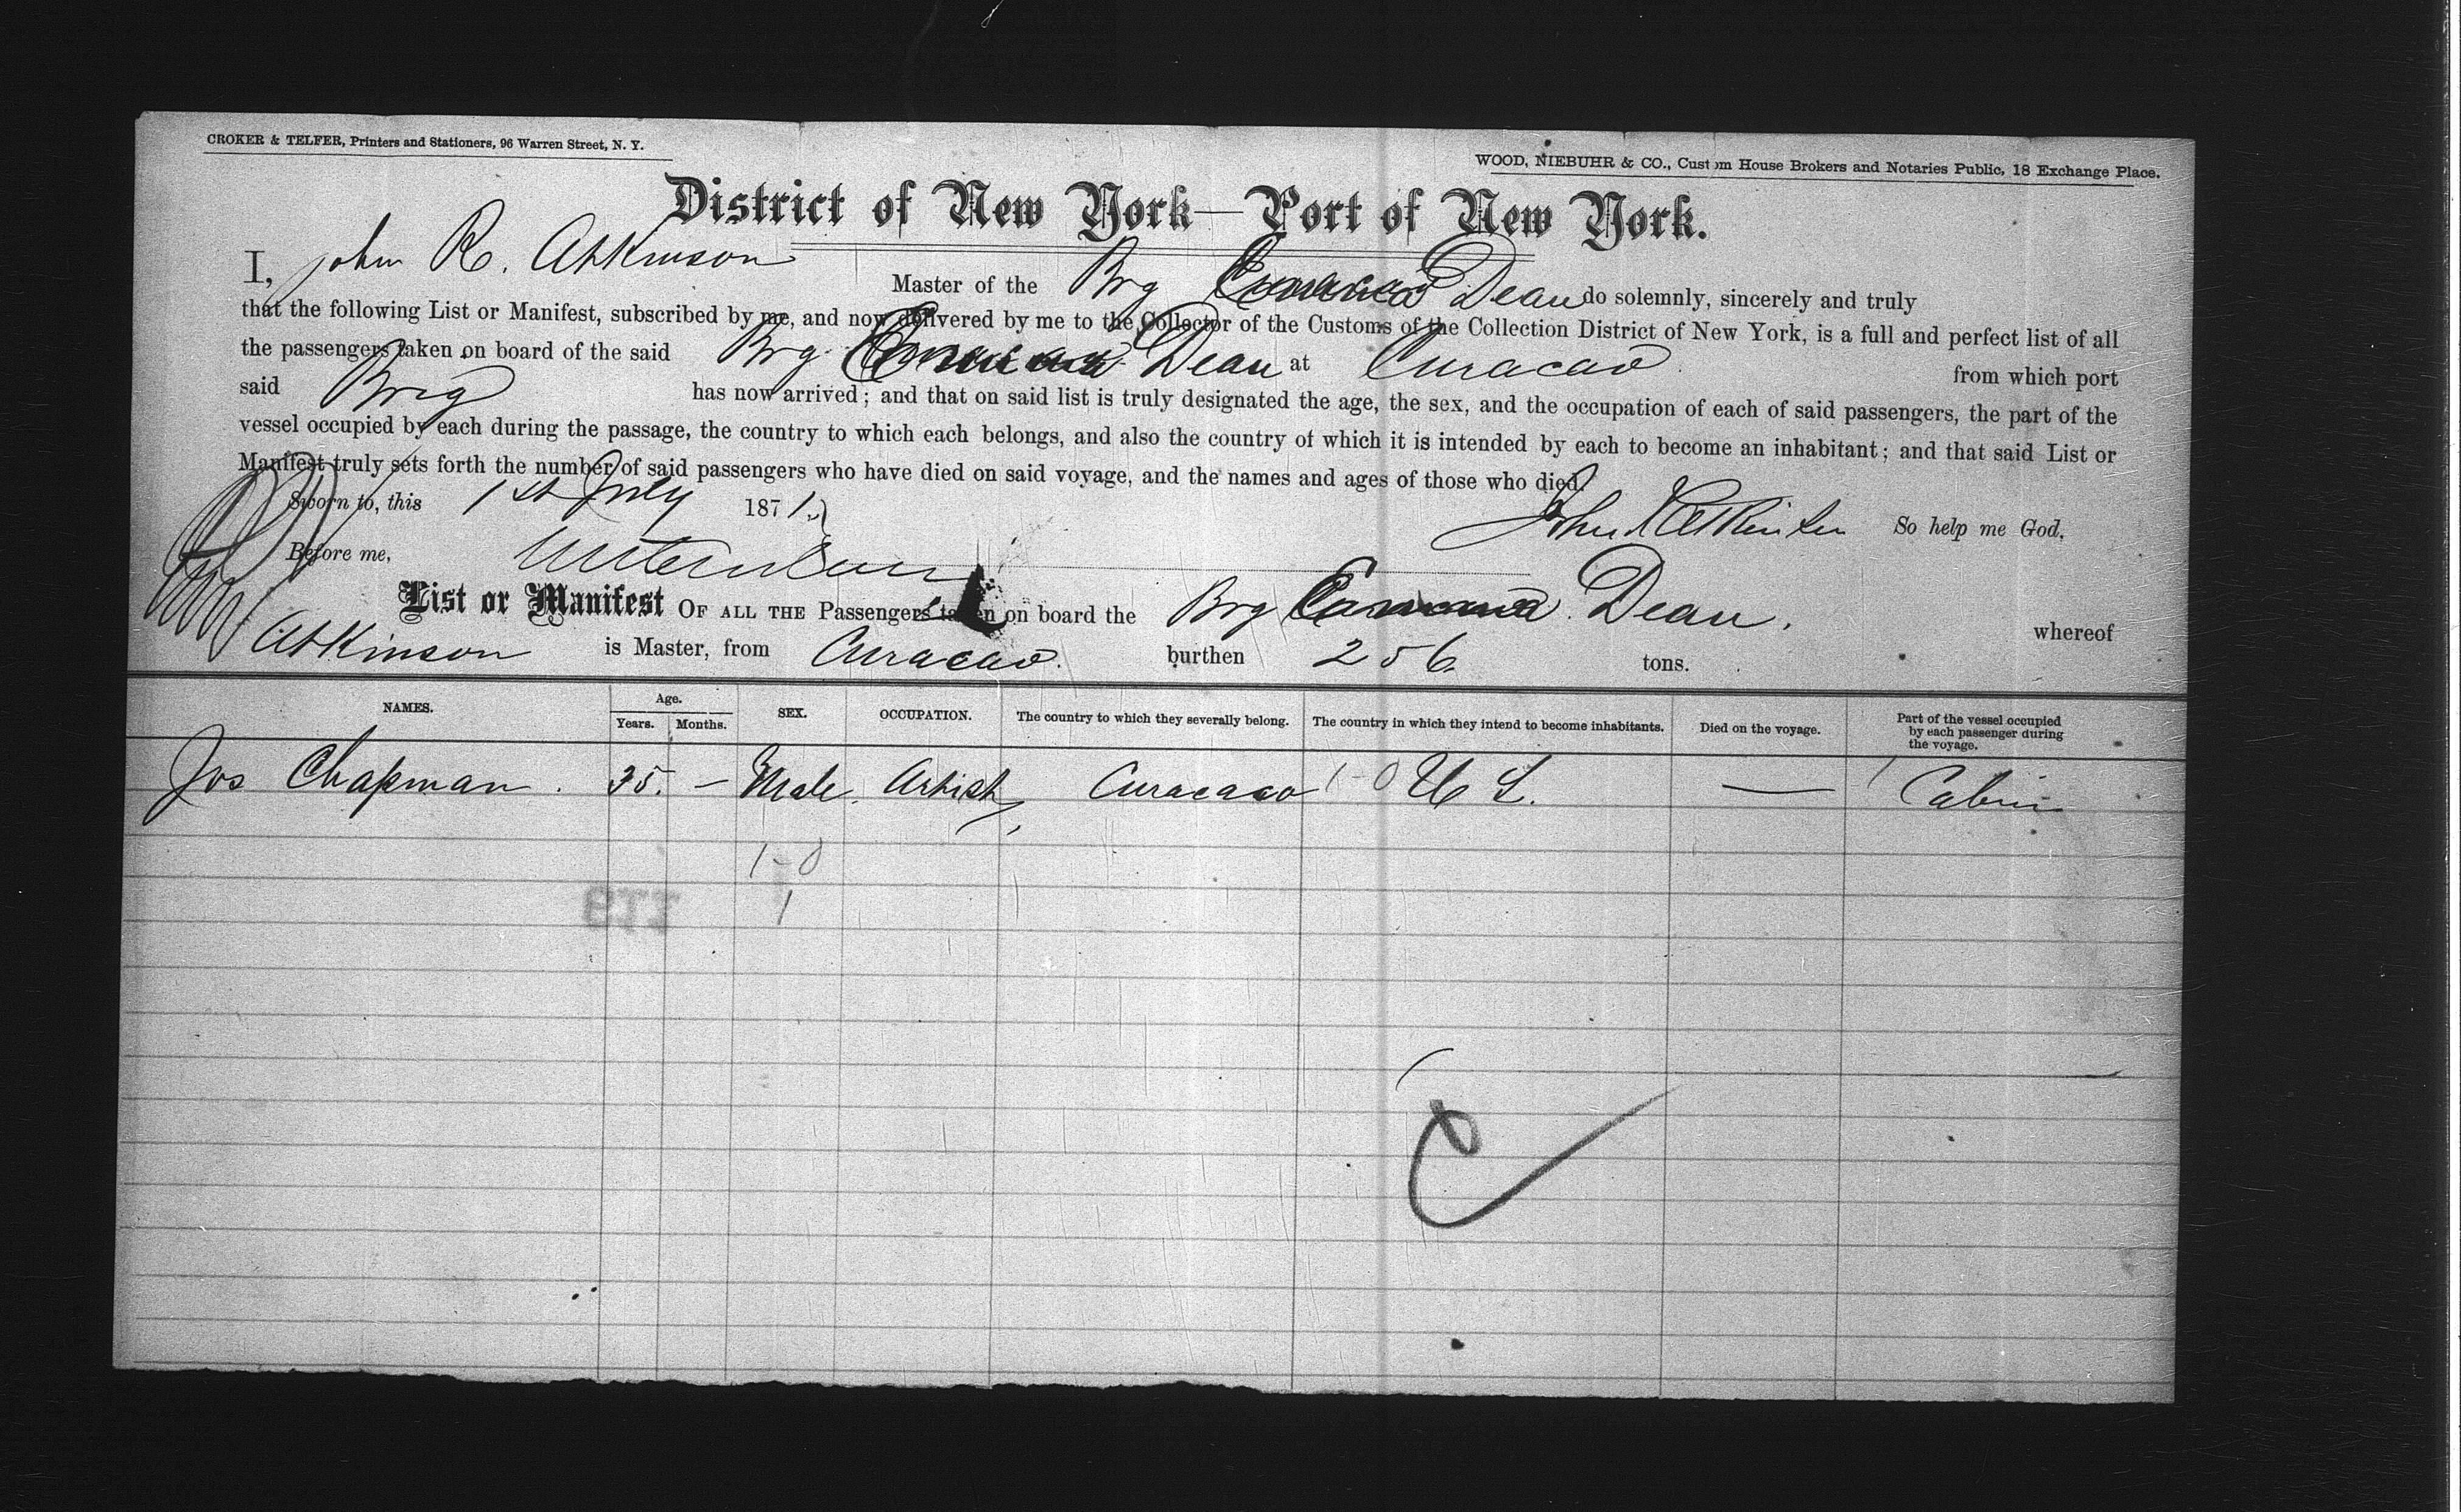 CROKER & TELFER, Printers and Stationers, 96 Warren Street, N. Y.
WOOD, NIEBUHR & CO., Custom House Brokers and Notaries Public, 18 Exchange Place.
District of New York—Port of New York.
I, John R. Atkinson Master of the Brg Dean do solemnly, sincerely and truly
that the following List or Manifest, subscribed by me, and now delivered by me to the Collector of the Customs of the Collection District of New York, is a full and perfect list of all
the passengers taken on board of the said Brg Dean at Curacao from which port
said Brig has now arrived; and that on said list is truly designated the age, the sex, and the occupation of each of said passengers, the part of the
vessel occupied by each during the passage, the country to which each belongs, and also the country of which it is intended by each to become an inhabitant; and that said List or
Manifest truly sets forth the number of said passengers who have died on said voyage, and the names and ages of those who died.
Sworn to, this 1st July 1871. So help me God,
Before me,
List or Manifest OF ALL THE Passengers taken on board the Brg Dean, whereof
Atkinson is Master, from Curacao. burthen 256 tons.
NAMES. Age. Years. Months. SEX. OCCUPATION. The country to which they severally belong. The country in which they intend to become inhabitants. Died on the voyage. Part of the vessel occupied by each passenger during the voyage.
Jos Chapman. 35. — Male. Artist, Curacao 1-0 U S. — 1 Cabin
1-0
1